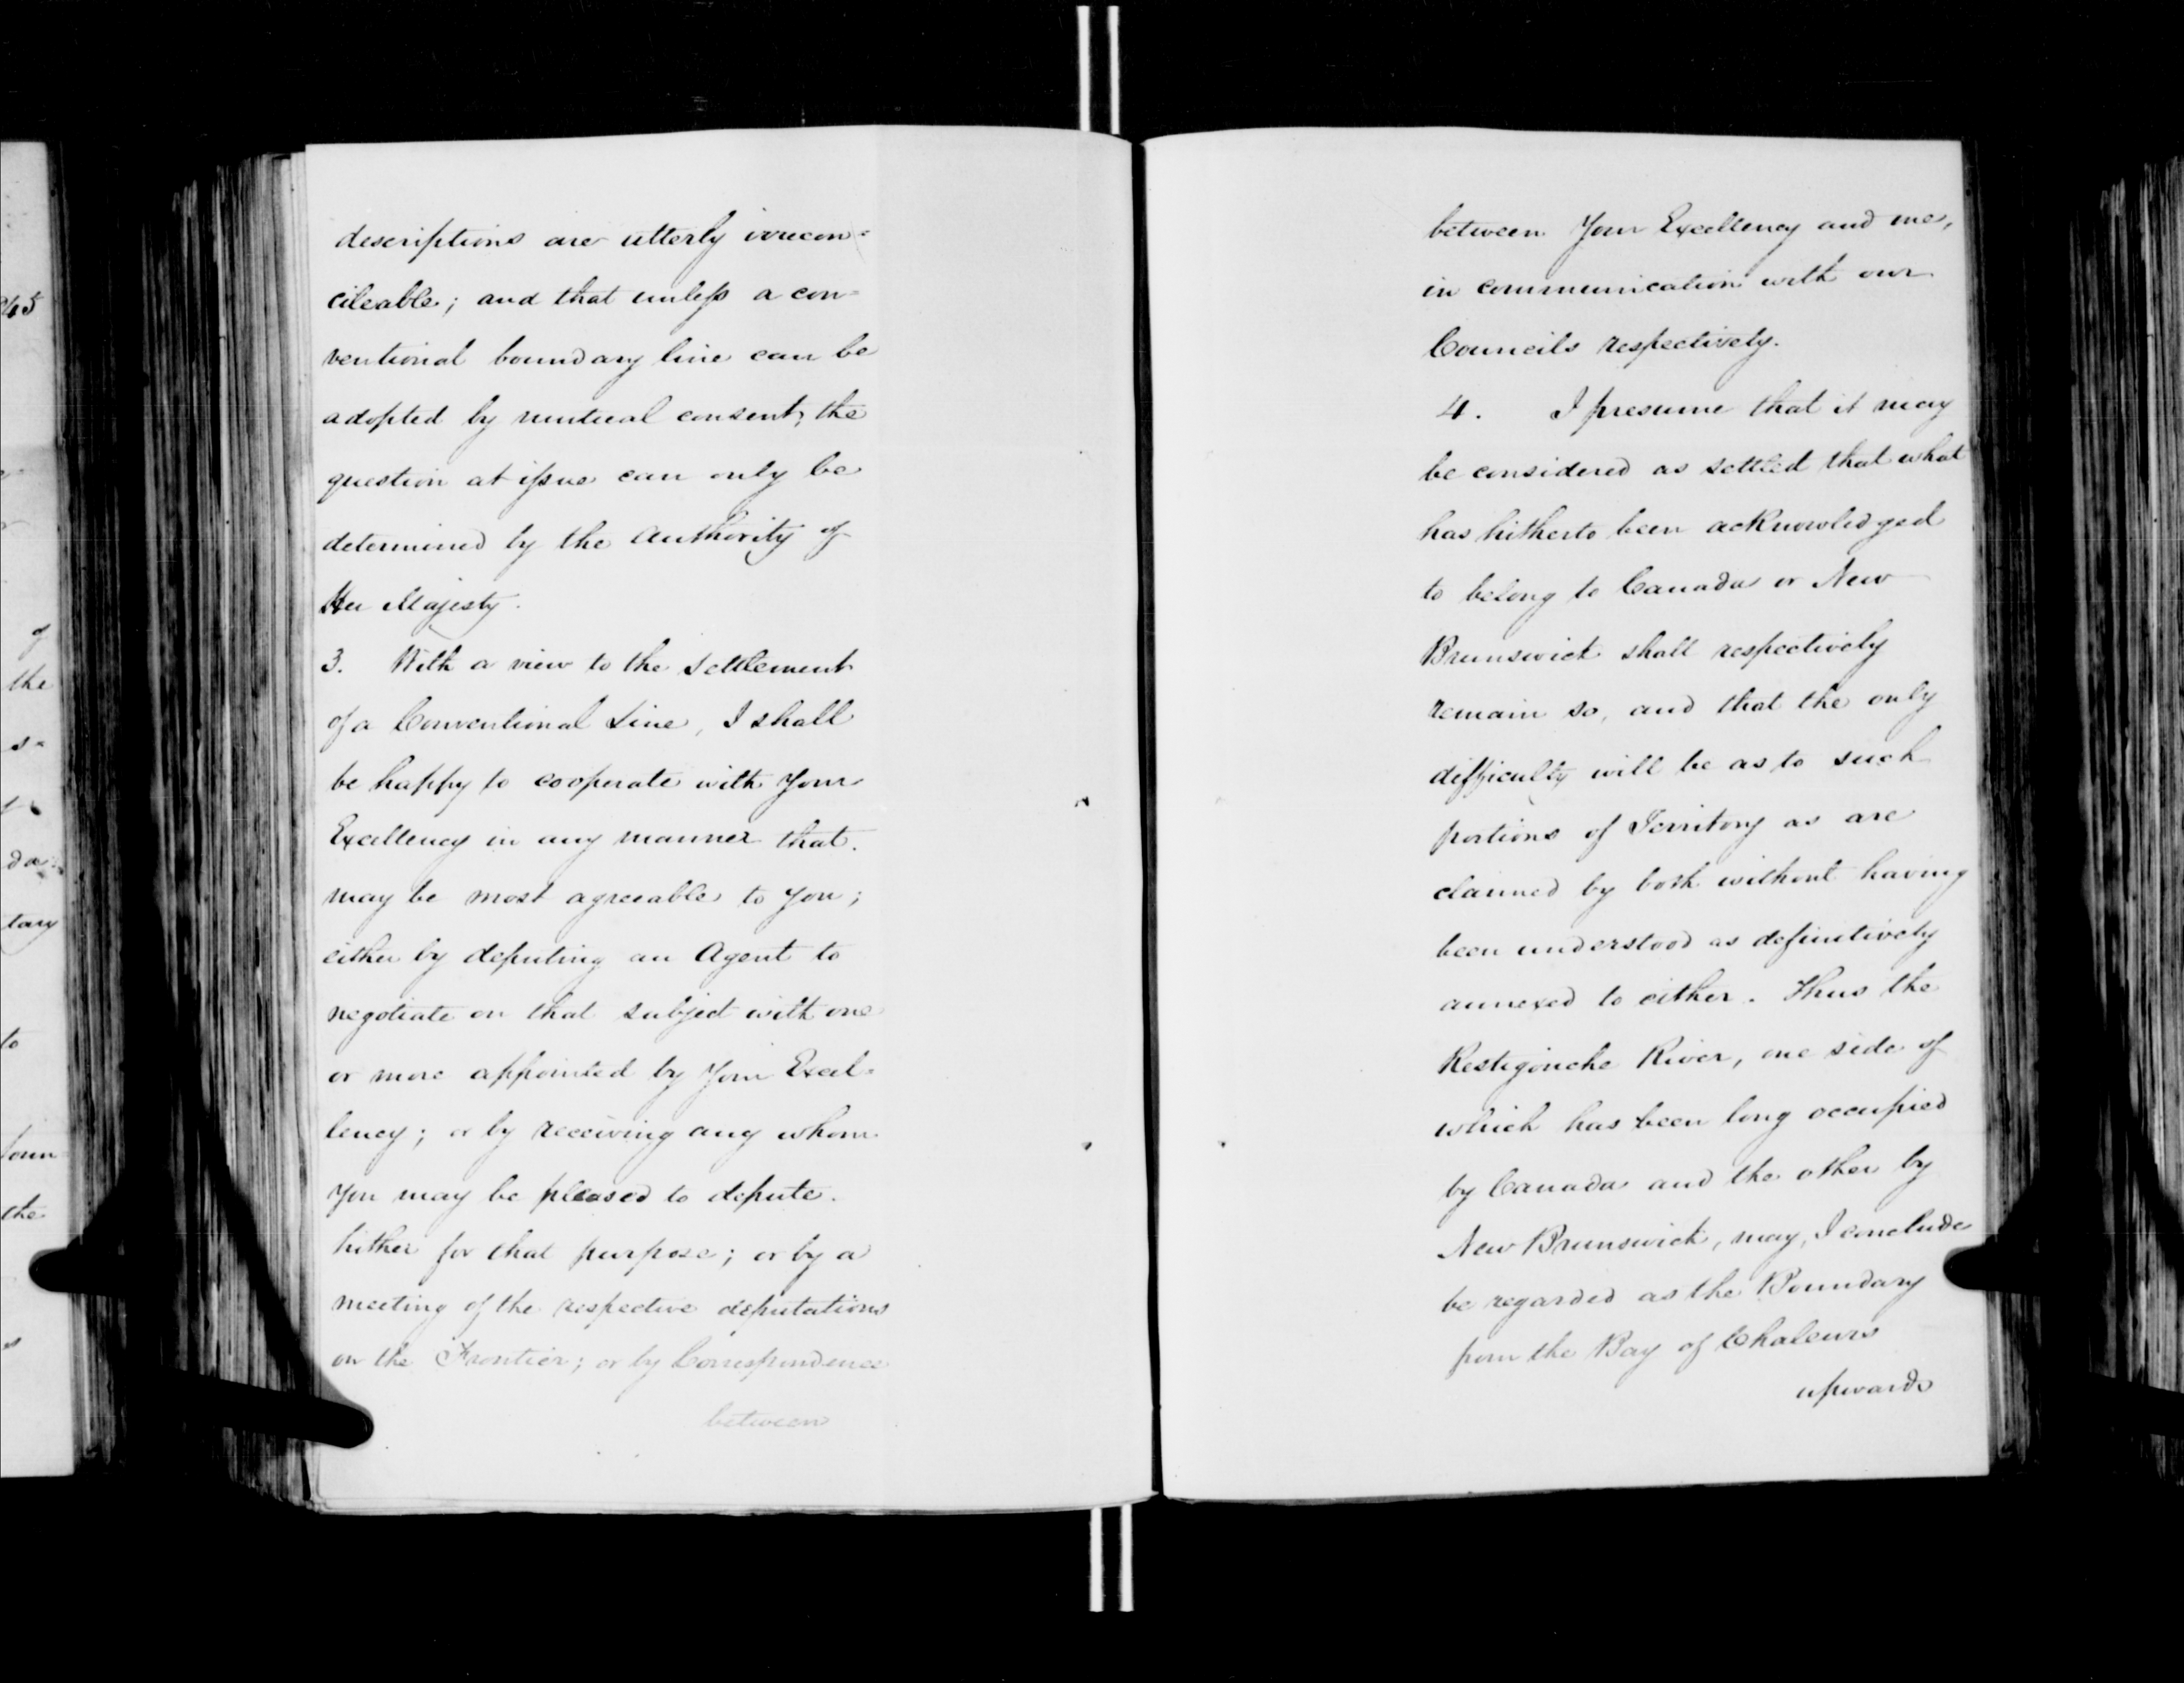 descriptions are utterly irrecon=
cileable; and that unless a con=
ventional boundary line can be
adopted by mutual consent, the
question at issue can only be
determined by the Authority of
Her Majesty.
3. With a view to the settlement
of a Conventional Line, I shall
be happy to cooperate with Your
Excellency in any manner that
may be most agreeable to You;
either by deputing an Agent to
negotiate on that subject with one
or more appointed by Your Excel=
lency; or by receiving any whom
You may be pleased to depute
hither for that purpose; or by a
meeting of the respective deputations
on the Frontier; or by Correspondence
between
between Your Excellency and me,
in communication with our
Councils respectively.
4. I presume that it may
be considered as settled that what
has hitherto been acknowledged
to belong to Canada or New
Brunswick shall respectively
remain so, and that the only
difficulty will be as to such
portions of Territory as are
claimed by both without having
been understood as definitively
annexed to either. Thus the
Restigouche River, one side of
which has been long occupied
by Canada and the other by
New Brunswick, may, I conclude
be regarded as the Boundary
from the Bay of Chaleurs
upwards
45
of
the
da
tary
to
the